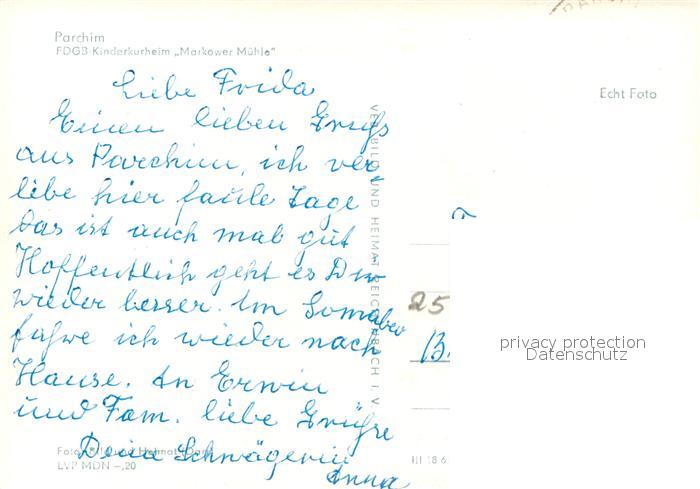 Parchim
FDGB-Kinderkurheim „Markower Mühle"
Echt Foto
Liebe Frida
Einen lieben Gruß
aus Parchim, ich ver-
lebe hier faule Tage
Das ist auch mal gut.
Hoffentlich geht es Dir
wieder besser. Im
fahre ich wieder nach
Hause. An Erwin
und Fam. liebe Grüße
Deine Schwägerin
Anna
VERLAG BILD UND HEIMAT REICHENBACH I. V.
25
13.
privacy protection
Datenschutz
Foto: Bild und Heimat
LVP MDN -,20
III 18 6